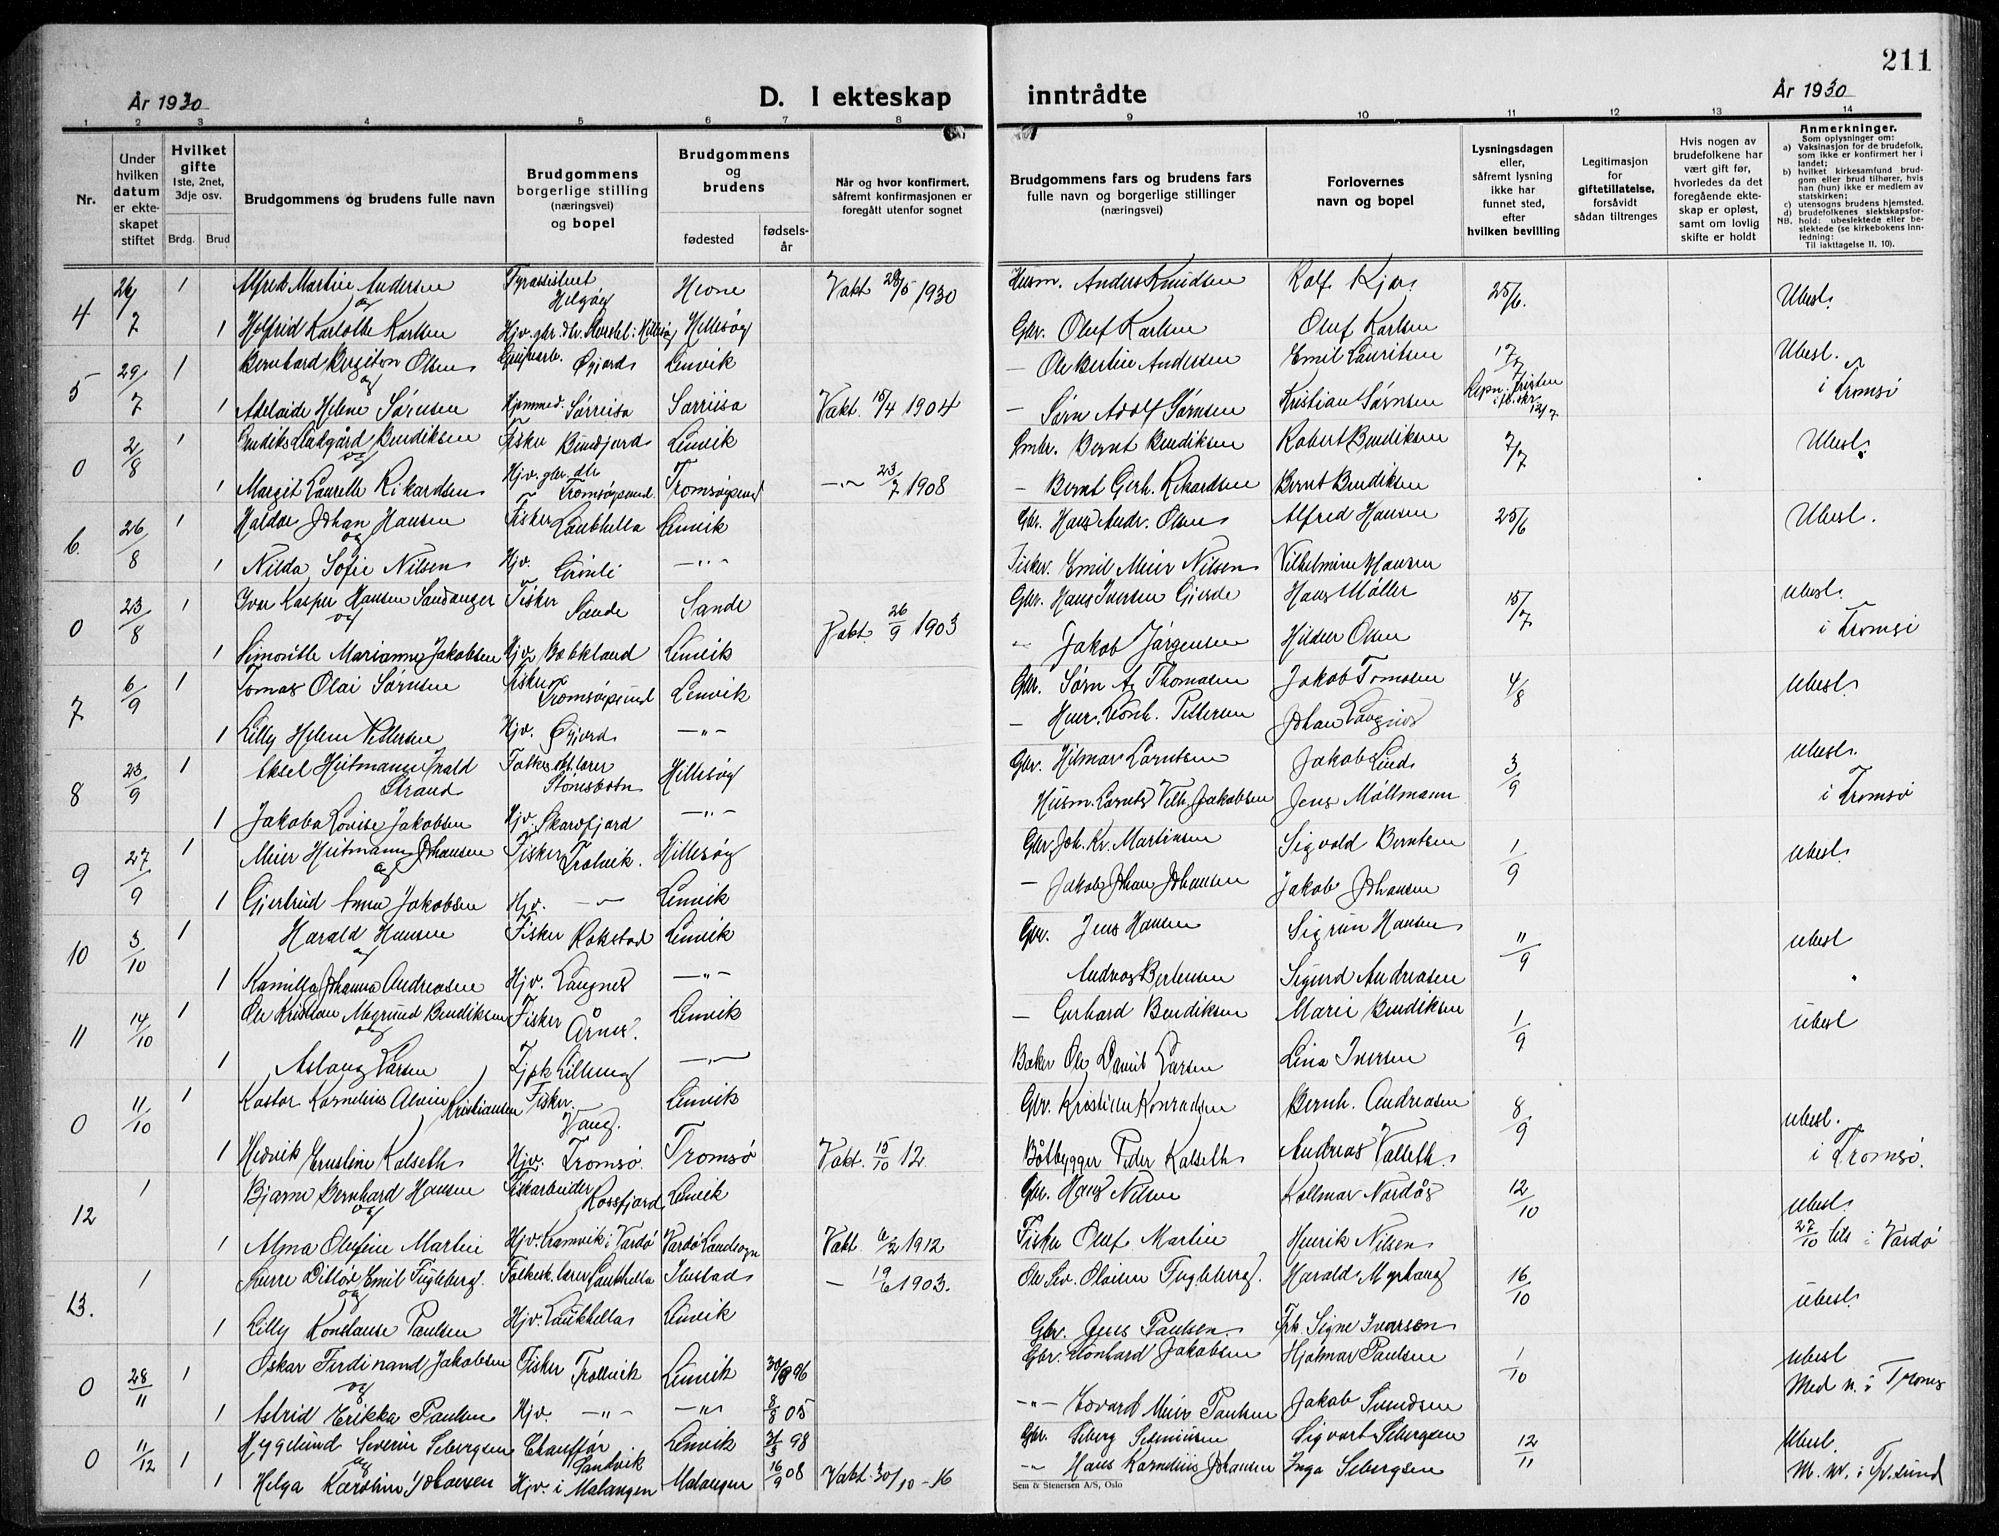 211
År 1930
D. I ekteskap inntrådte
År 1930
1 2 3 4 5 6 7 8 9 10 11 12 13 14
Nr.
Under hvilken datum er ekteskapet stiftet
Hvilket gifte
1ste, 2net, 3dje osv.
Brdg. Brud
Brudgommens og brudens fulle navn
Brudgommens borgerlige stilling (næringsvei) og bopel
Brudgommens og brudens
fødested
fødselsår
Når og hvor konfirmert, såfremt konfirmasjonen er foregått utenfor sognet
Brudgommens fars og brudens fars fulle navn og borgerlige stillinger (næringsvei)
Forlovernes navn og bopel
Lysningsdagen eller, såfremt lysning ikke har funnet sted, efter hvilken bevilling
Legitimasjon for giftetillatelse, forsåvidt sådan tiltrenges
Hvis nogen av brudefolkene har vært gift før, hvorledes da det foregående ekteskap er opløst, samt om lovlig skifte er holdt
Anmerkninger.
Som oplysninger om:
a) Vaksinasjon for de brudefolk, som ikke er konfirmert her i landet;
b) hvilket kirkesamfund brudgom eller brud tilhører, hvis han (hun) ikke er medlem av statskirken;
c) utensogns brudens hjemsted.
NB. d) brudefolkenes slektskapsforhold: ubeslektede eller beslektede (se kirkebokens Innledning: Til iakttagelse II, 10).
4 26/7 1 Alfred Martin Andersen Helgøy Vakt 1930 Husm. Anders Knudsen Rolf 25/6. Ubesl.
og
1 Karlotte Karlsen Hillesøy Gbr. Oluf Karlsen Oluf Karlsen
5 29/7 1 Bernhard Bergiton Olsen Gjjord Lenvik — Ole Bertin Andersen Emil Lauritsen Ubesl.
og i Tromsø
1 Adelaide Helene Sørnsen Hjemmed. Sørreisa Sørreisa Vakt. 15/4 1904 — Sørn Adolf Sørnsen Kristian Sørnsen
0 2/8 1 Bendiks Bendiksen Fisker Lenvik Bernt Bendiksen Robert Bendiksen 7/7 Ubesl.
og
1 Margit Laurelle Rikardsen Hjv. gbr. dtr. Tromsøysund Tromsøysund —"— 23/7 1908 — Bernt Gerh. Rikardsen Bernt Bendiksen
6. 26/8 1 Haldor Johan Hansen Fisker Laukhella Lenvik Gbr. Hans Andr. Olsen Alfred Hansen 25/6 Ubesl.
og
1 Nilda Sofie Nilsen Hjv. Grønli —"— Fisker. Emil Meier Nilsen Vilhelmine Hansen
0 23/8 1 Ivar Kasper Hansen Sandanger Fisker Sande Sande Gbr. Hans Iversen Gjerde Hans Møller 15/7 Ubesl.
og i Tromsø
1 Marianne Jakobsen Hjv. Lenvik Vakt. 26/9 1903 " Jakob Jørgensen Hildur Olsen
7 6/9 1 Tomas Olai Sørnsen Fisker Tromsøysund Lenvik Gbr. Sørn A. Thomasen Jakob Tomasen 4/8 Ubesl.
1 Lilly Helene Pettersen Hjv. Gjjord —"— — Leonh. Pettersen Johan
8 23/9 1 Aksel Heitmann Strand Folkesk.lærer Stonesbotn Hillesøy Gbr. Hilmar Lorntsen Jakob Lind 3/9 Ubesl.
i Tromsø
1 Jakoba Lovise Jakobsen Hjv. Skardfjord —"— Husm. Lornts Vilh. Jakobsen Jens Møllmann
9 27/9 1 Meier Heitmann Johansen Fisker Trolvik. Hillesøy Gbr. Joh. Kr. Martinsen Sigvald Berntsen 1/9 Ubesl.
og
1 Gjertrud Anna Jakobsen Hjv. —"— Lenvik — Jakob Johan Johansen Jakob Johansen
10 3/10 1 Harald Hansen Fisker Rokstad Lenvik Gbr. Jens Hansen Sigrun Hansen 11/9 Ubesl
og
1 Kamilla Johanna Andreasen Hjv. Laugnes —"— Andreas Bertensen Sigurd Andreasen
11 14/10 1 Ole Kristian Bendiksen Fisker Årnes. Lenvik — Gerhard Bendiksen Marie Bendiksen 1/9 Ubesl
og
1 Aslaug Larsen Lenvik Baker Ole Daniel Larsen Lina Iversen
0 11/10 1 Kastor Kornelius Alvin Kristiansen Fisker. Vang. Lenvik Gbr. Kristian Konradsen Bernh. Andreasen 8/9 Ubesl.
i Tromsø.
1 Hedvik Ernstine Kalseth Hjv. Tromsø. Tromsø Vakt. 15/10 12. Båtbygger Peder Kalseth Andreas Valseth.
12 1 Bjarne Bernhard Hansen Fiskarbeider Rossfjord Lenvik Gbr. Hans Nilsen Kollmar Nordås 12/10 Ubesl.
og 27/10 i Vardø
1 Alma Olufine Martin Hjv. Kramvik i Vardø Vardø Landsogn Vakt 1912 Fisker Oluf Martin Henrik Nilsen
13. 1 Sverre Ditløv Emil Fugleberg. Folkesk.lærer Laukhella — 19/6 1903. Fugleberg. Harald Myrhaug 16/10 Ubesl.
og
1 Lilly Konstanse Paulsen Hjv. Laukhella Lenvik Gbr. Jens Paulsen. Signe Ivarsen
0 28/11 1 Oskar Ferdinand Jakobsen Fisker Trollvik Lenvik 96 Gbr. Leonhard Jakobsen Hjalmar Paulsen 1/10 Ubesl
og Med n. i Troms
1 Astrid Erikka Paulsen Hjv. —"— —"— 8/8 05 —"— Edvard Meier Paulsen Jakob Sundsen
0 11/12 1 Hygelund Severin Sebergsen Chauffør Sandvik Lenvik 31/3 98 Gbr. Seberg Sigvart Sebergsen 12/11 Ubesl.
og
1 Helga Karoline Johansen Hjv. i Malangen Malangen 16/9 08 Vakt. 30/10 - 16 —"— Hans Kornelius Johansen Inga Sebergsen
Sem & Stenersen A/S, Oslo